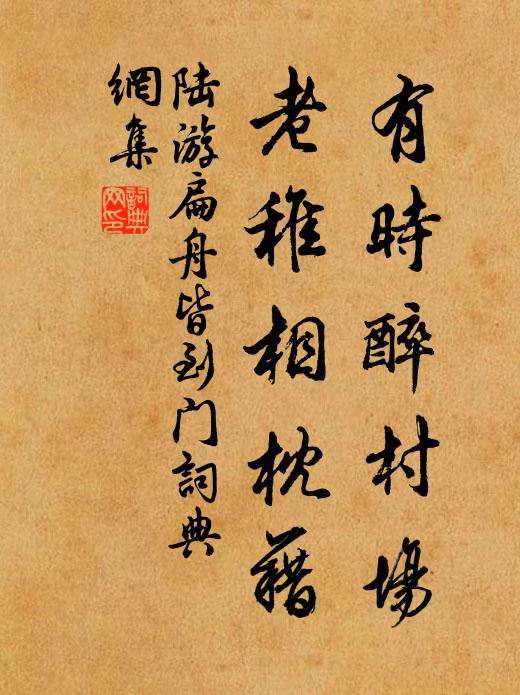 有時醉村場
老稚相枕藉
陸游扁舟皆到门詞典
網集
詞典
网印